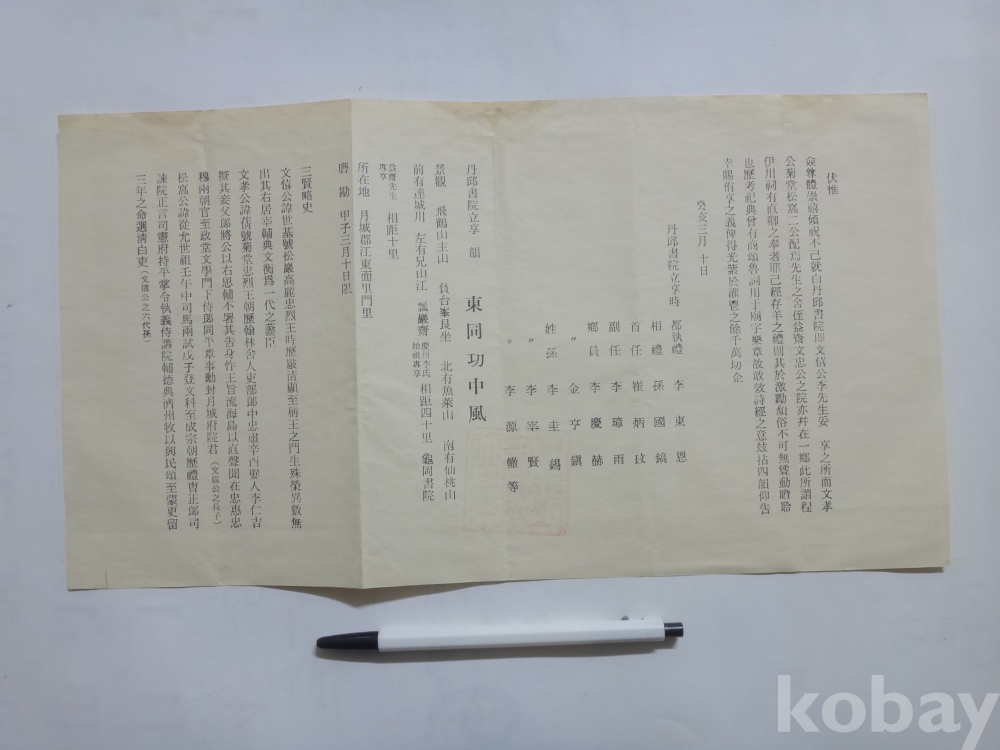 伏惟
僉尊體崇禧頌祝不已就白丹邱書院即文僖公李先生妥 享之所而文孝
公菊堂松嵩二公配焉先生之舍侄益齋文忠公之院亦幷在一鄕此所謂程
伊川祠有直卿之奉者耶已經存羊之禮則其於激勵頹俗不可無聳動瞻聆
也歷考祀典曾有商頌魯詞用于廟宇樂章故敢效詩經之意玆拈四韻仰告
幸賜侑享之義俾得光紫於灌鬯之餘千萬切企
癸亥三月十日
丹邱書院立享時
都執禮 李東恩
相禮 孫國鎬
首任 崔炳玟
副任 李璋雨
鄕員 李慶赫
〃 金亨鎭
姓孫 李圭錫
〃 李宰賢
〃 李源轍等
丹邱書院立享 韻 東同功中風
景觀 飛鶴山主山 負台峯艮坐 北有魚萊山 南有仙桃山
前有達城川 左有兄山江 瓢巖齋 慶州李氏始祖專享 相距四十里 龜岡書院
益齋先生專享 相距十里
所在地 月城郡江東面里門里
磨勘 甲子三月十日限
三賢略史
文僖公諱世基號松巖高麗忠烈王時歷敭淸顯至柄王之門生殊榮異數無
出其右居宰輔典文衡爲一代之藎臣
文孝公諱蒨號菊堂忠烈王朝歷翰林舍人吏部郎中忠肅辛酉嬖人李仁吉
擬其妾父郎將公以右思輔不署其告身忤王旨流海島以直聲聞在忠惠忠
穆兩朝官至政堂文學門下侍郎同平章事勳封月城府院君(文僖公之長子)
松嵩公諱從允世祖壬午中司馬兩試戊子登文科至成宗朝歷禮曹正郎司
諫院正言司憲府持平掌令執義侍講院輔德典濟州牧以興民頌至蒙更留
三年之命選淸白吏(文僖公之六代孫)
kobay